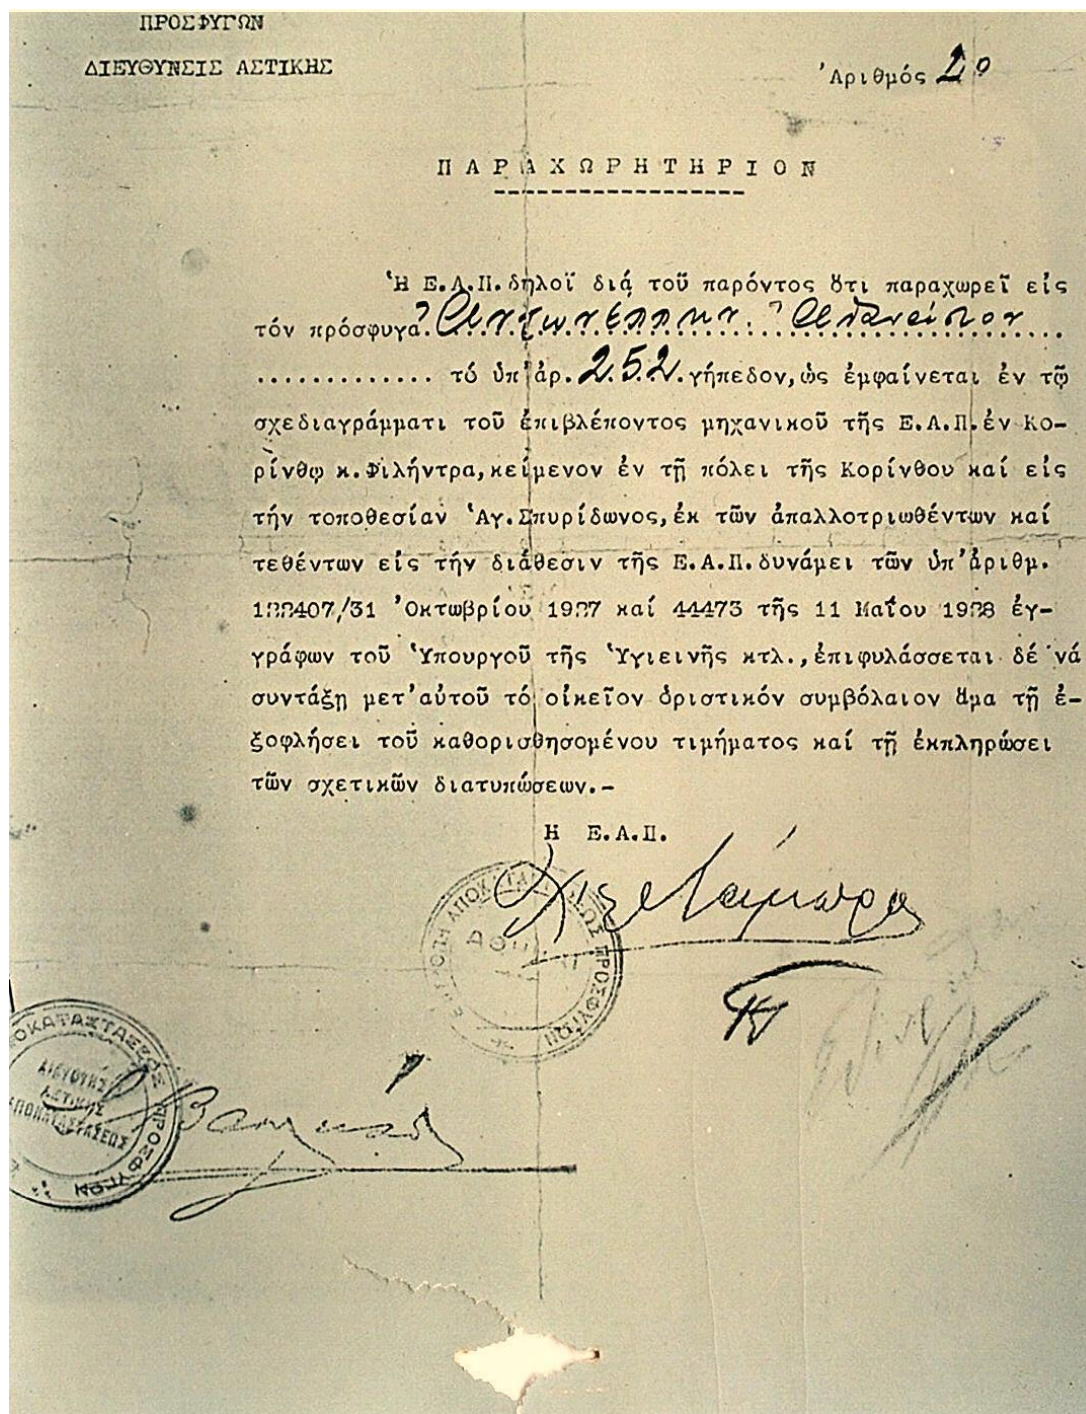 ΠΡΟΣΦΥΓΩΝ
ΔΙΕΥΘΥΝΣΙΣ ΑΣΤΙΚΗΣ
Ἀριθμός
ΠΑΡΑΧΩΡΗΤΗΡΙΟΝ
Ἡ Ε.Α.Π. δηλοῖ διά τοῦ παρόντος ὅτι παραχωρεῖ εἰς
τόν πρόσφυγα
............. τό ὑπ'ἀρ. 252 γήπεδον, ὡς ἐμφαίνεται ἐν τῷ
σχεδιαγράμματι τοῦ ἐπιβλέποντος μηχανικοῦ τῆς Ε.Α.Π. ἐν Κο-
ρίνθῳ κ. Φιλήντρα, κείμενον ἐν τῇ πόλει τῆς Κορίνθου καί εἰς
τήν τοποθεσίαν Ἁγ. Σπυρίδωνος, ἐκ τῶν ἀπαλλοτριωθέντων καί
τεθέντων εἰς τήν διάθεσιν τῆς Ε.Α.Π. δυνάμει τῶν ὑπ'ἀριθμ.
122407/31 Ὀκτωβρίου 1927 καί 44473 τῆς 11 Μαΐου 1928 ἐγ-
γράφων τοῦ Ὑπουργοῦ τῆς Ὑγιεινῆς κτλ., ἐπιφυλάσσεται δέ νά
συντάξῃ μετ'αὐτοῦ τό οἰκεῖον ὁριστικόν συμβόλαιον ἅμα τῇ ἐ-
ξοφλήσει τοῦ καθορισθησομένου τιμήματος καί τῇ ἐκπληρώσει
τῶν σχετικῶν διατυπώσεων.-
Η Ε.Α.Π.
ΕΠΙΤΡΟΠΗ ΑΠΟΚΑΤΑΣΤΑΣΕΩΣ ΠΡΟΣΦΥΓΩΝ
ΑΠΟΚΑΤΑΣΤΑΣΕΩΣ ΠΡΟΣΦΥΓΩΝ
ΔΙΕΥΘΥΝΣΙΣ
ΑΣΤΙΚΗΣ
ΑΠΟΚΑΤΑΣΤΑΣΕΩΣ